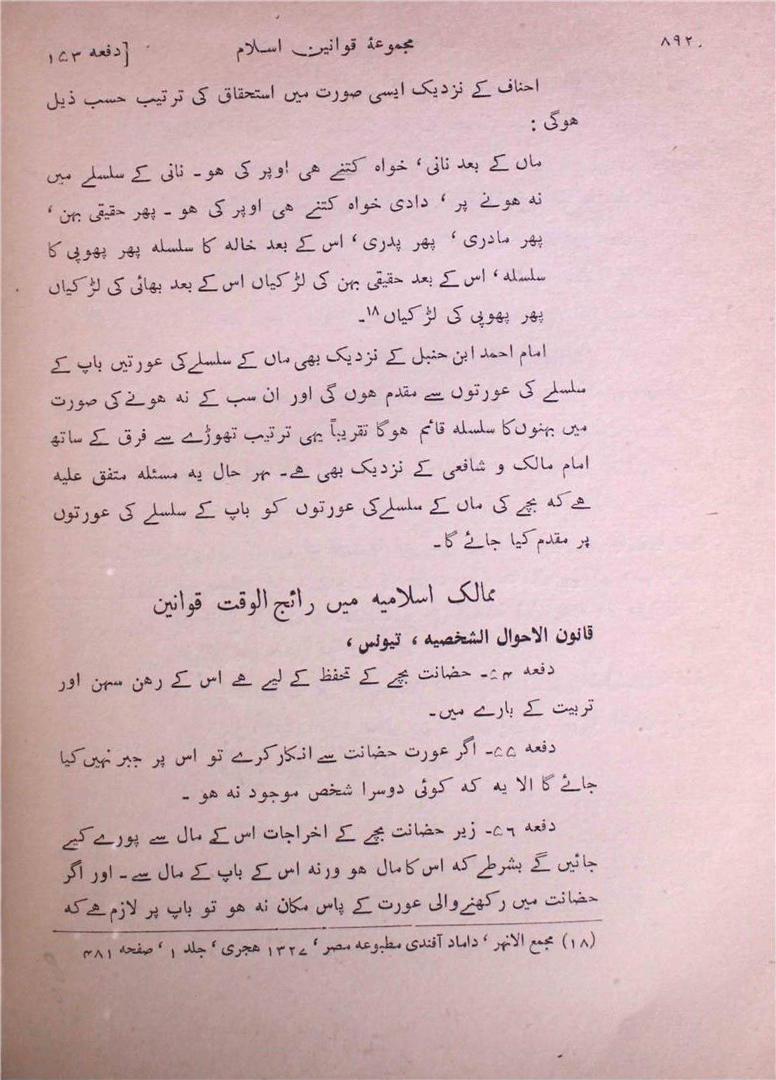 ۸۹۲ مجموعۂ قوانین اسلام [دفعہ ۱۵۳
احناف کے نزدیک ایسی صورت میں استحقاق کی ترتیب حسب ذیل
ھوگی :
ماں کے بعد نانی، خواہ کتنے ھی اوپر کی ھو۔ نانی کے سلسلے میں
نہ ھونے پر، دادی خواہ کتنے ھی اوپر کی ھو۔ پھر حقیقی بہن،
پھر مادری، پھر پدری، اس کے بعد خالہ کا سلسلہ پھر پھوپی کا
سلسلہ، اس کے بعد حقیقی بہن کی لڑکیاں اس کے بعد بھائی کی لڑکیاں
پھر پھوپی کی لڑکیاں ۱۸۔
امام احمد ابن حنبل کے نزدیک بھی ماں کے سلسلے کی عورتیں باپ کے
سلسلے کی عورتوں سے مقدم ھوں گی اور ان سب کے نہ ھونے کی صورت
میں بہنوں کا سلسلہ قائم ھوگا تقریباً یہی ترتیب تھوڑے سے فرق کے ساتھ
امام مالک و شافعی کے نزدیک بھی ھے۔ بہر حال یہ مسئلہ متفق علیہ
ھے کہ بچے کی ماں کے سلسلے کی عورتوں کو باپ کے سلسلے کی عورتوں
پر مقدم کیا جائے گا۔
ممالک اسلامیہ میں رائج الوقت قوانین
قانون الاحوال الشخصیہ، تیونس،
دفعہ ۵۴۔ حضانت بچے کے تحفظ کے لیے ھے اس کے رھن سہن اور
تربیت کے بارے میں۔
دفعہ ۵۵۔ اگر عورت حضانت سے انکار کرے تو اس پر جبر نہیں کیا
جائے گا الا یہ کہ کوئی دوسرا شخص موجود نہ ھو۔
دفعہ ۵۶۔ زیر حضانت بچے کے اخراجات اس کے مال سے پورے کیے
جائیں گے بشرطے کہ اس کا مال ھو ورنہ اس کے باپ کے مال سے۔ اور اگر
حضانت میں رکھنے والی عورت کے پاس مکان نہ ھو تو باپ پر لازم ھے کہ
(۱۸) مجمع الانہر، داماد آفندی مطبوعہ مصر، ۱۳۲۷ ھجری، جلد ۱، صفحہ ۴۸۱